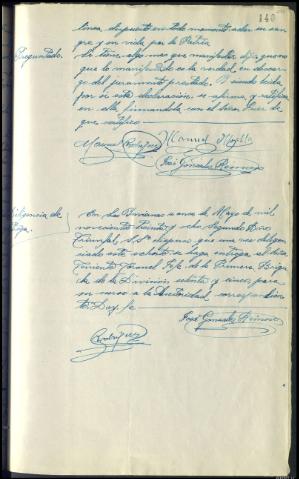 140
linea, dispuesto en todo momento a dar su san-
gre y su vida por la Patria
Preguntado.
Si tiene algo mas que manifestar dijo que no
que lo manifestado es la verdad, en descar-
go del juramento prestado. Y siendo leida
por si esta declaración se afirma y ratifica
en ella, firmandola con el Señor Juez de
que certifico
Manuel
José Gonzalez
Diligencia de
En
a once de Mayo de mil
novecientos treinta y ocho Segundo Año
Triunfal, S.Sª dispuso que una vez diligen-
ciado este exhorto se haga entrega al Señor
Teniente Coronel Jefe de la Primera Briga-
da de la División setenta y cinco, para
su curso a la Autoridad correspondien-
te. Doy fe
José Gonzalez